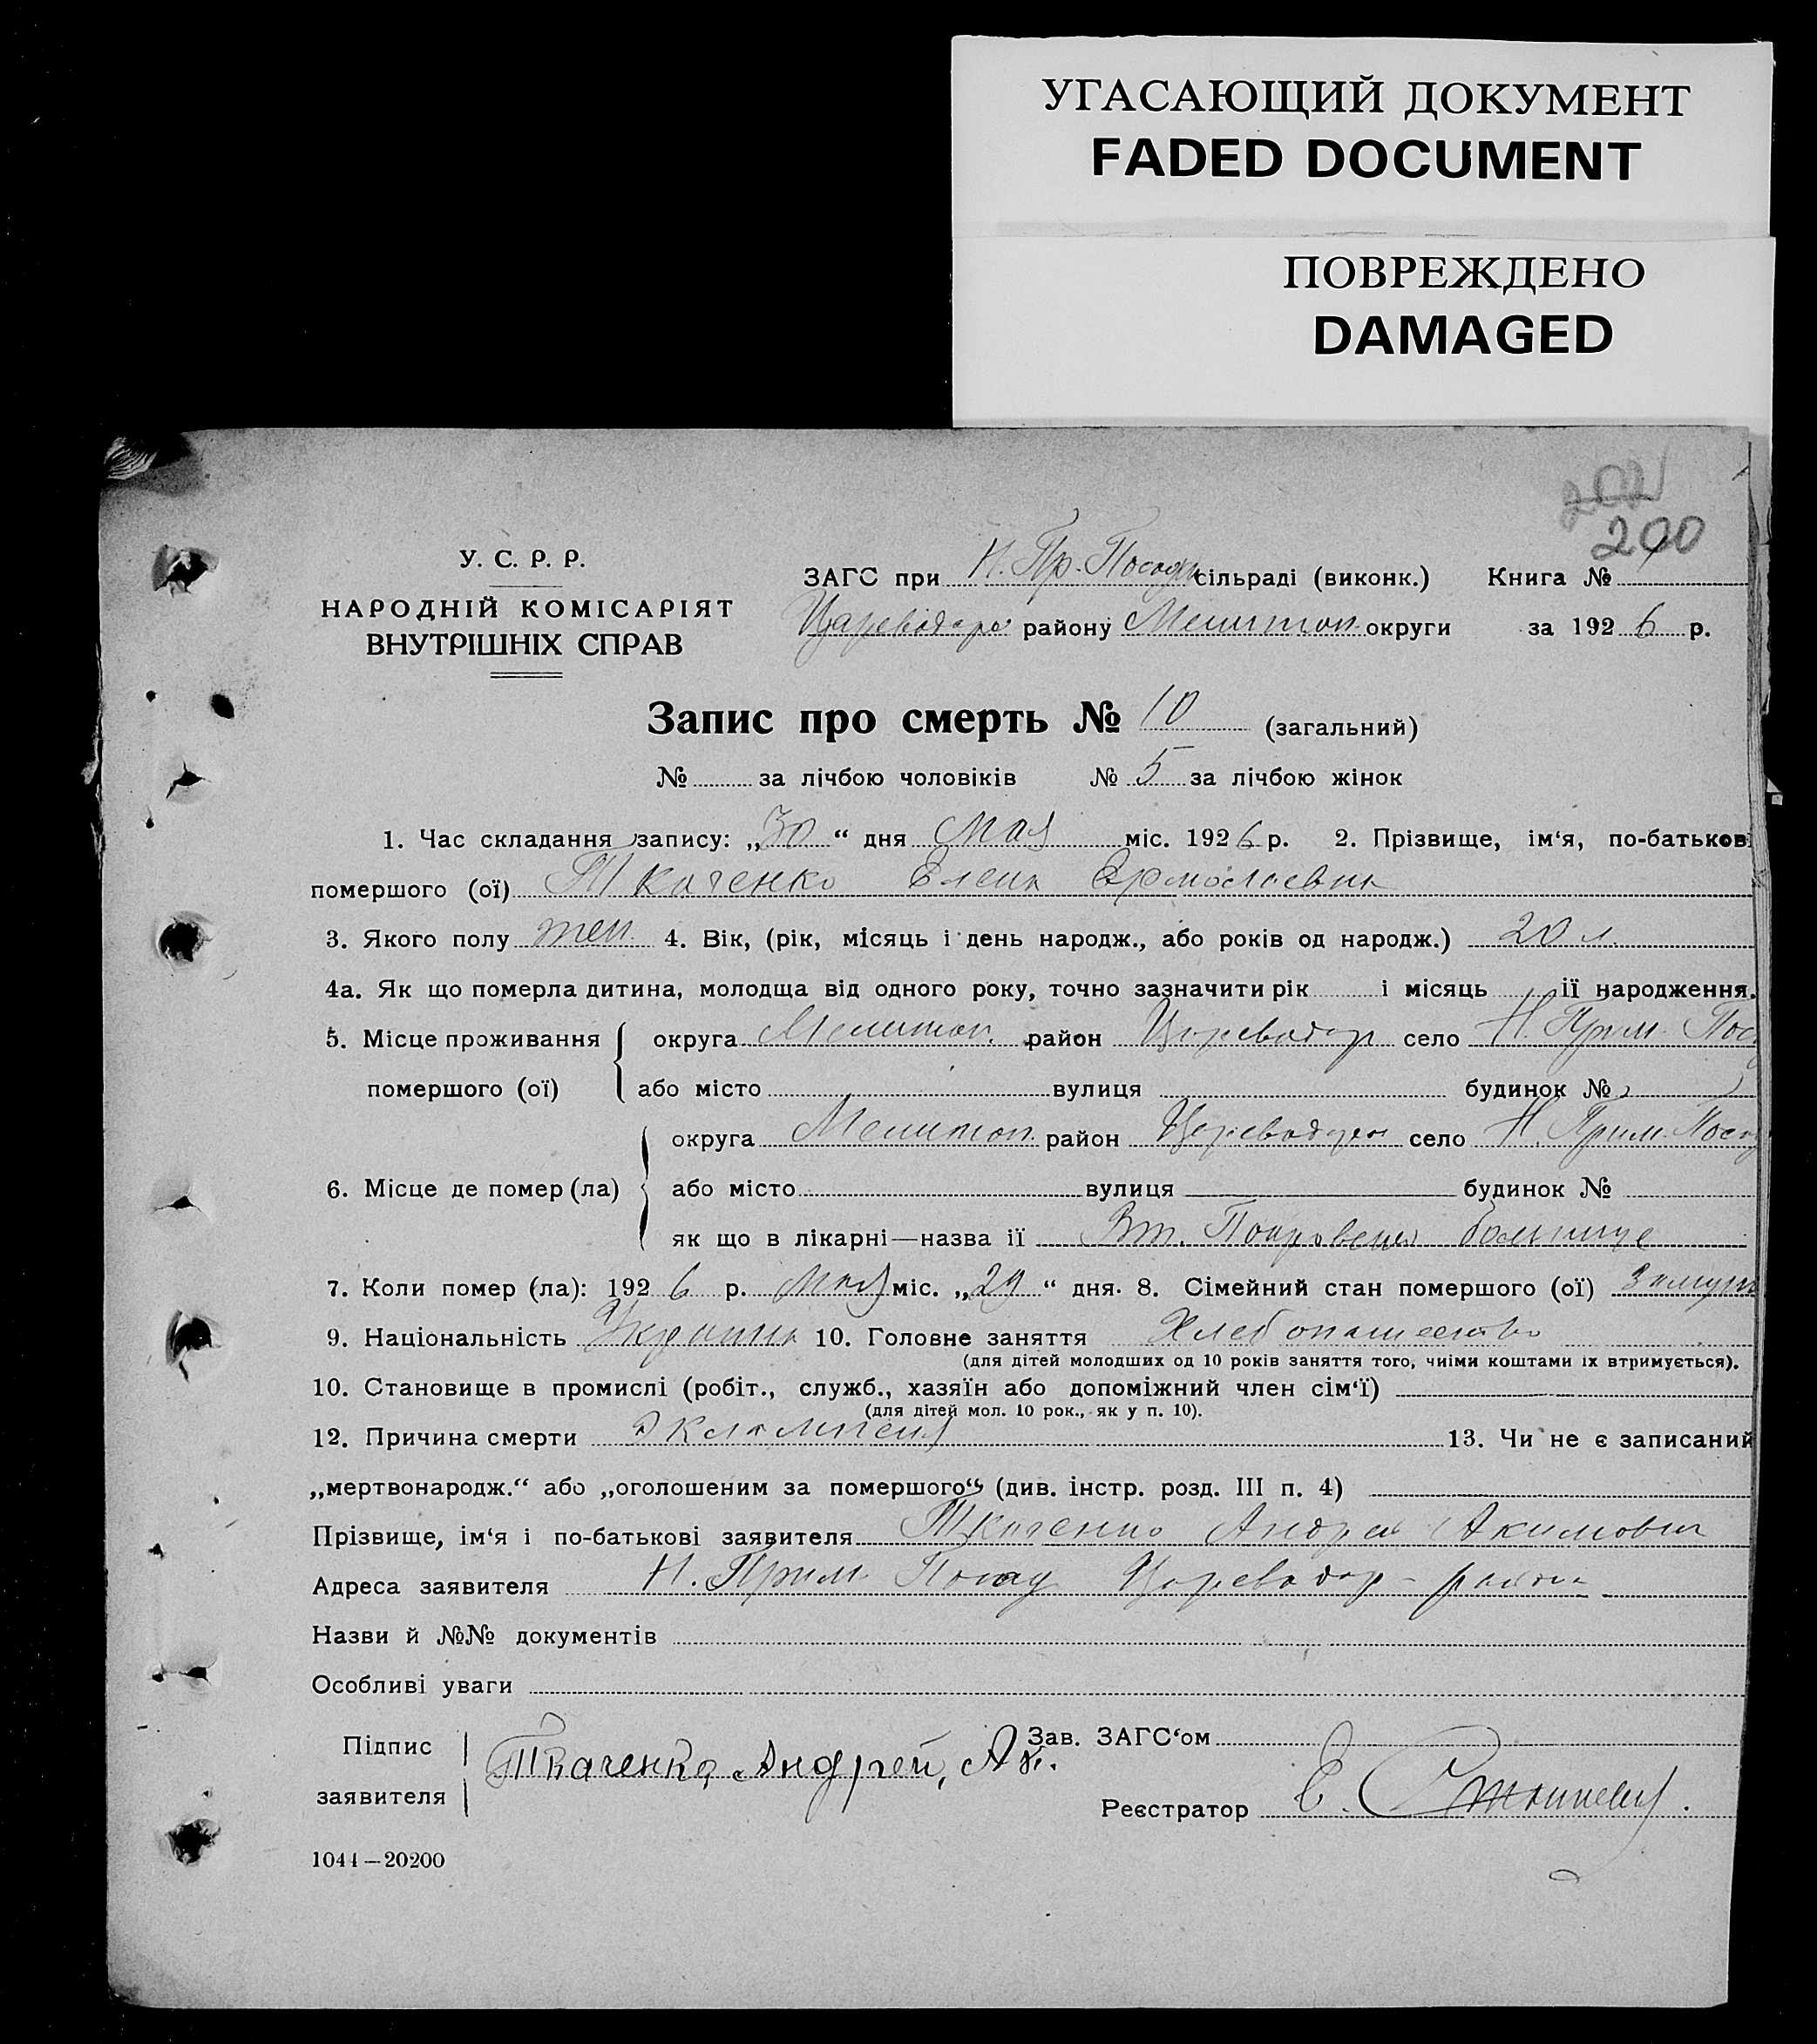 УГАСАЮЩИЙ ДОКУМЕНТ
FADED DOCUMENT
ПОВРЕЖДЕНО
DAMAGED
202
200
У. С. Р. Р.
НАРОДНІЙ КОМІСАРІЯТ
ВНУТРІШНІХ СПРАВ
ЗАГС при Н. Пр. Посадн сільраді (виконк.) Книга №
Цареводар району Мелитоп. округи за 1926 р.
Запис про смерть № 10 (загальний)
№ за лічбою чоловіків № 5 за лічбою жінок
1. Час складання запису: „30“ дня Мая міс. 1926 р. 2. Прізвище, ім‘я, по-батькові
помершого (ої) Ткаченко Елена Ермолаевна
3. Якого полу жен 4. Вік, (рік, місяць і день народж., або років од народж.) 20 л.
4а. Як що померла дитина, молодща від одного року, точно зазначити рік і місяць ії народження.
5. Місце проживання помершого (ої) округа Мелитоп. район Цареводар село Н. Прим. Пос
або місто вулиця будинок №
6. Місце де помер (ла) округа Мелитоп. район Цареводар село Н. Прим. Посад
або місто вулиця будинок №
як що в лікарні—назва ії Вт. Покровська больнице
7. Коли помер (ла): 1926 р. Мая міс. „29“ дня. 8. Сімейний стан помершого (ої) замуж
9. Національність Украинка 10. Головне заняття Хлебопашество
(для дітей молодших од 10 років заняття того, чиїми коштами іх втримується).
10. Становище в промислі (робіт., служб., хазяїн або допоміжний член сім‘ї)
(для дітей мол. 10 рок., як у п. 10).
12. Причина смерти Эклампсия 13. Чи не є записаний
„мертвонародж.“ або „оголошеним за помершого“ (див. інстр. розд. III п. 4)
Прізвище, ім‘я і по-батькові заявителя Ткаченко Андрей Акимович
Адреса заявителя Н. Прим. Посад Цареводар - района
Назви й №№ документів
Особливі уваги
Підпис заявителя Ткаченко, Андрей, Ак. Зав. ЗАГС‘ом
Реєстратор Е.
1044—20200